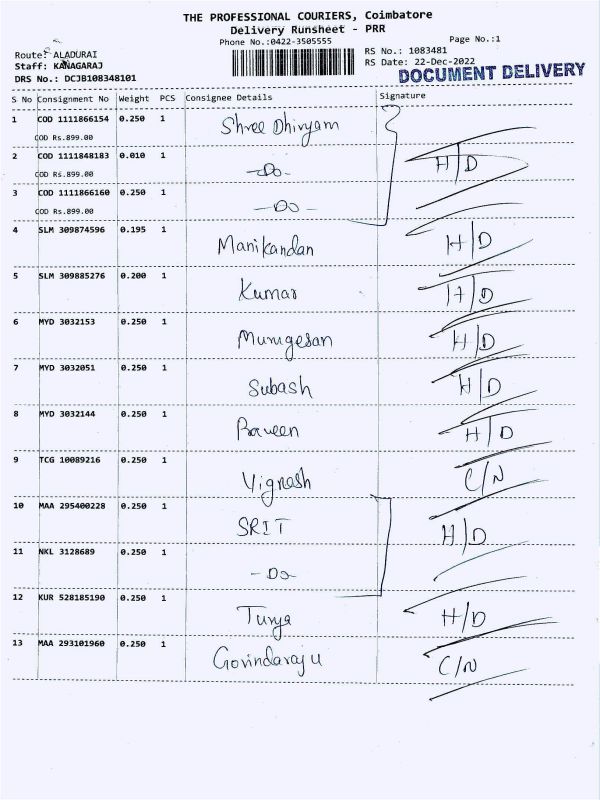 THE PROFESSIONAL COURIERS, Coimbatore
Delivery Runsheet - PRR
Phone No.:0422-3505555
Page No.:1
Route: ALADURAI
Staff: KANAGARAJ
DRS No.: DCJB108348101
RS No.: 1083481
RS Date: 22-Dec-2022
DOCUMENT DELIVERY
S No Consignment No Weight PCS Consignee Details Signature
1 COD 1111866154 0.250 1 Shree Dhivyam
COD Rs.899.00
2 COD 1111848183 0.010 1 -Do- H/D
COD Rs.899.00
3 COD 1111866160 0.250 1 -Do-
COD Rs.899.00
4 SLM 309874596 0.195 1 Manikandan H/D
5 SLM 309885276 0.200 1 Kumar H/D
6 MYD 3032153 0.250 1 Murugesan H/D
7 MYD 3032051 0.250 1 Subash H/D
8 MYD 3032144 0.250 1 Praveen H/D
9 TCG 10089216 0.250 1 Vignesh C/N
10 MAA 295400228 0.250 1 SRIT H/D
11 NKL 3128689 0.250 1 -Do-
12 KUR 528185190 0.250 1 Turya H/D
13 MAA 293101960 0.250 1 Govindaraju C/N